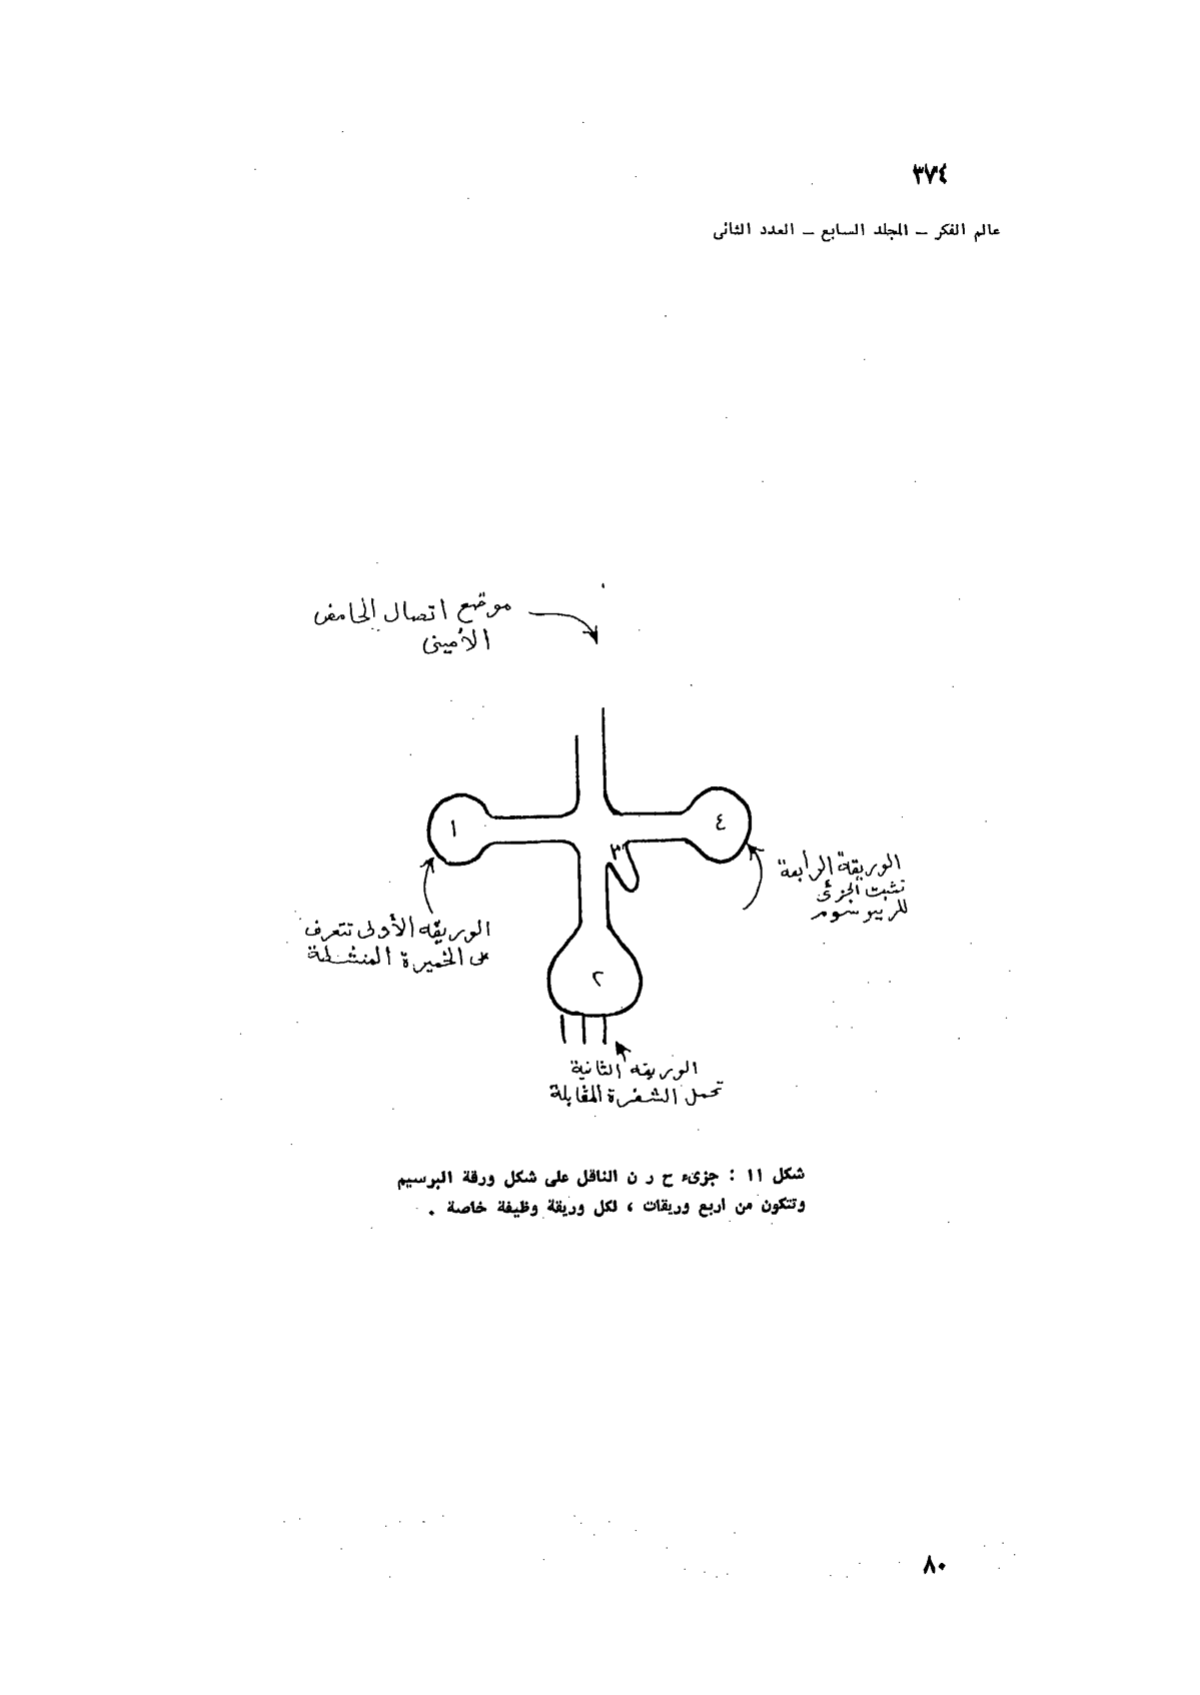 ٣٧٤
عالم الفكر – المجلد السابع – العدد الثانى
موقع اتصال الحامض
الأمينى
١
٤
٣
٢
الوريقة الرابعة
تثبت الجزئ
للريبوسوم
الوريقه الأولى تتعرف
على الخميرة المنشطة
الوريقه الثانية
تحمل الشفرة المقابلة
شكل ١١ : جزىء ح ر ن الناقل على شكل ورقة البرسيم
وتتكون من اربع وريقات ، لكل وريقة وظيفة خاصة .
٨٠